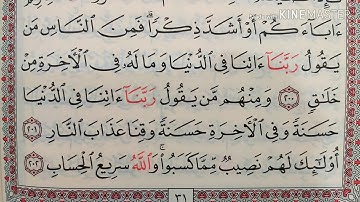 KINEMASTER
ءَابَآءَكُمْ أَوْ أَشَدَّ ذِكْرًا ۗ فَمِنَ النَّاسِ مَن
يَقُولُ رَبَّنَآ ءَاتِنَا فِي الدُّنْيَا وَمَا لَهُۥ فِي الْأَخِرَةِ مِنْ
خَلَٰقٍ ٢٠٠ وَمِنْهُم مَّن يَقُولُ رَبَّنَآ ءَاتِنَا فِي الدُّنْيَا
حَسَنَةً وَفِي الْأَخِرَةِ حَسَنَةً وَقِنَا عَذَابَ النَّارِ ٢٠١
أُوْلَٰٓئِكَ لَهُمْ نَصِيبٌ مِّمَّا كَسَبُوا۟ ۚ وَاللَّهُ سَرِيعُ الْحِسَابِ ٢٠٢
٣١